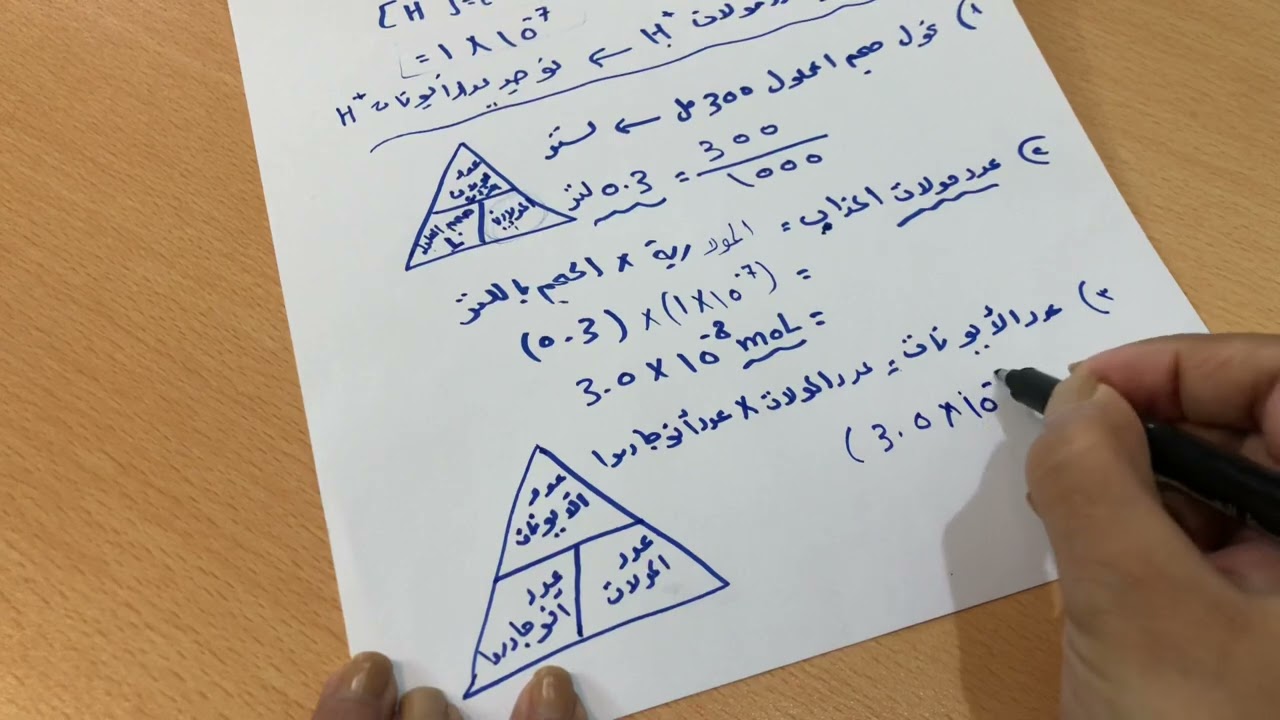 = 1 × 10⁻⁷
مولات H⁺ ← نوجد عدد أيونات H⁺
١) نحول حجم المحلول 300 مل ← لتر
300/1000 = 0.3 لتر
٢) عدد مولات المذاب = المولارية × الحجم باللتر
= (1×10⁻⁷) × (0.3)
= 3.0 × 10⁻⁸ mol
٣) عدد الأيونات = عدد المولات × عدد أفوجادرو
(3.0 × 10⁻
عدد
المولارية
حجم المحلول
عدد
الأيونات
عدد
أفوجادرو
عدد
المولات